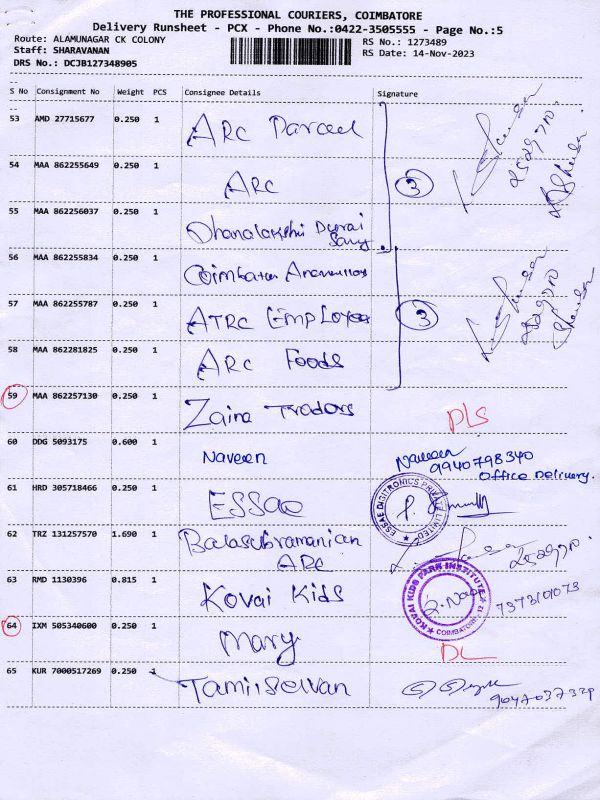 THE PROFESSIONAL COURIERS, COIMBATORE
Delivery Runsheet - PCX - Phone No.:0422-3505555 - Page No.:5
Route: ALAMUNAGAR CK COLONY
RS No.: 1273489
Staff: SHARAVANAN
RS Date: 14-Nov-2023
DRS No.: DCJB127348905
S No Consignment No Weight PCS Consignee Details Signature
53 AMD 27715677 0.250 1 ARC Parcel
54 MAA 862255649 0.250 1 ARC
3
55 MAA 862256037 0.250 1 Dhanalakshi Durai
Samy
56 MAA 862255834 0.250 1 Coimbatore
57 MAA 862255787 0.250 1 ATRC Employee
3
58 MAA 862281825 0.250 1 ARC Foods
59 MAA 862257130 0.250 1 Zaina Traders PLS
60 DDG 5093175 0.600 1 Naveen Naveen
9940798340
Office Delivery.
61 HRD 305718466 0.250 1 ESSAE
ESSAE DIGITRONICS PRIVATE LIMITED
62 TRZ 131257570 1.690 1 Balasubramanian
ARC
63 RMD 1130396 0.815 1 Kovai Kids 7373101073
KOVAI KIDS PARK INSTITUTE
COIMBATORE
64 IXM 505340600 0.250 1 Mary DL
65 KUR 7000517269 0.250 1 Tamilselvan
9047037329